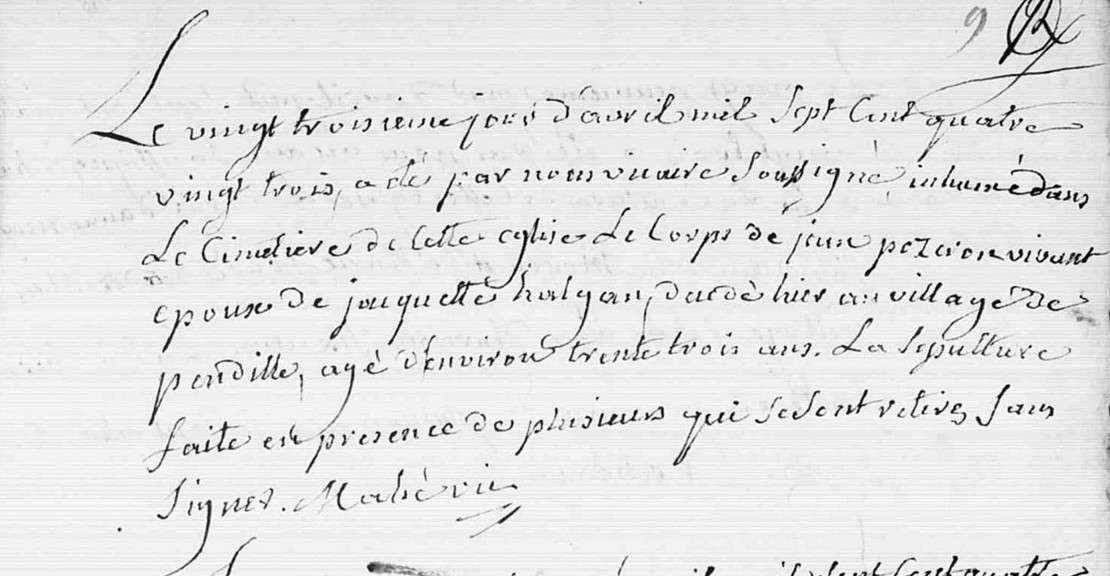 9
Le vingt troisieme jour d'avril mil sept cent quatre
vingt trois, a été par nous vicaire soussigné, inhumé dans
Le Cimetiere de cette eglise Le Corps de jean pezeron vivant
epoux de jacquette halgan, decedé hier au village de
pendille, agé d'environ trente trois ans. La sepulture
faite en presence de plusieurs qui se sont retirés sans
signer. Mahé vic